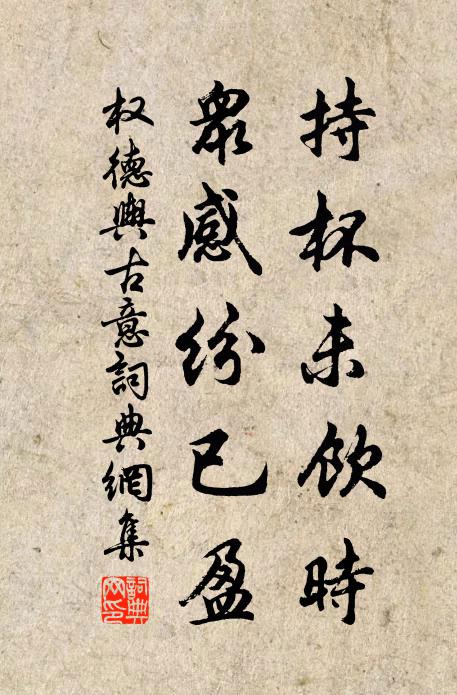 持杯未飲時
眾感紛已盈
权德輿古意詞典網集
詞典網印